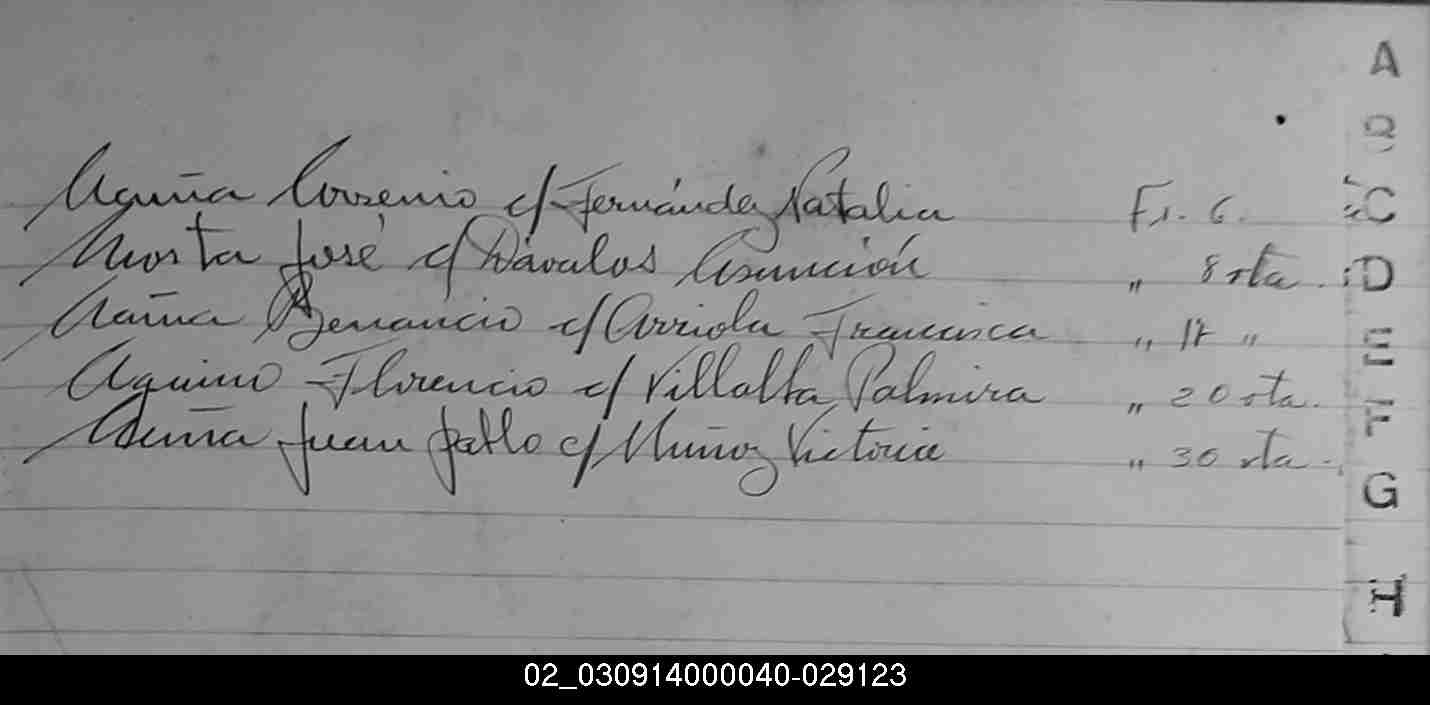 Acuña Corsenio c/ Fernández Natalia Fs. 6.
Acosta José c/ Dávalos Asunción " 8 vta.
Acuña Benancio c/ Arriola Francisca " 17 "
Aquino Florencio c/ Villalba Palmira " 20 vta.
Acuña Juan Pablo c/ Muñoz Victoria " 30 vta.
A
B
C
D
E
F
G
H
02_030914000040-029123